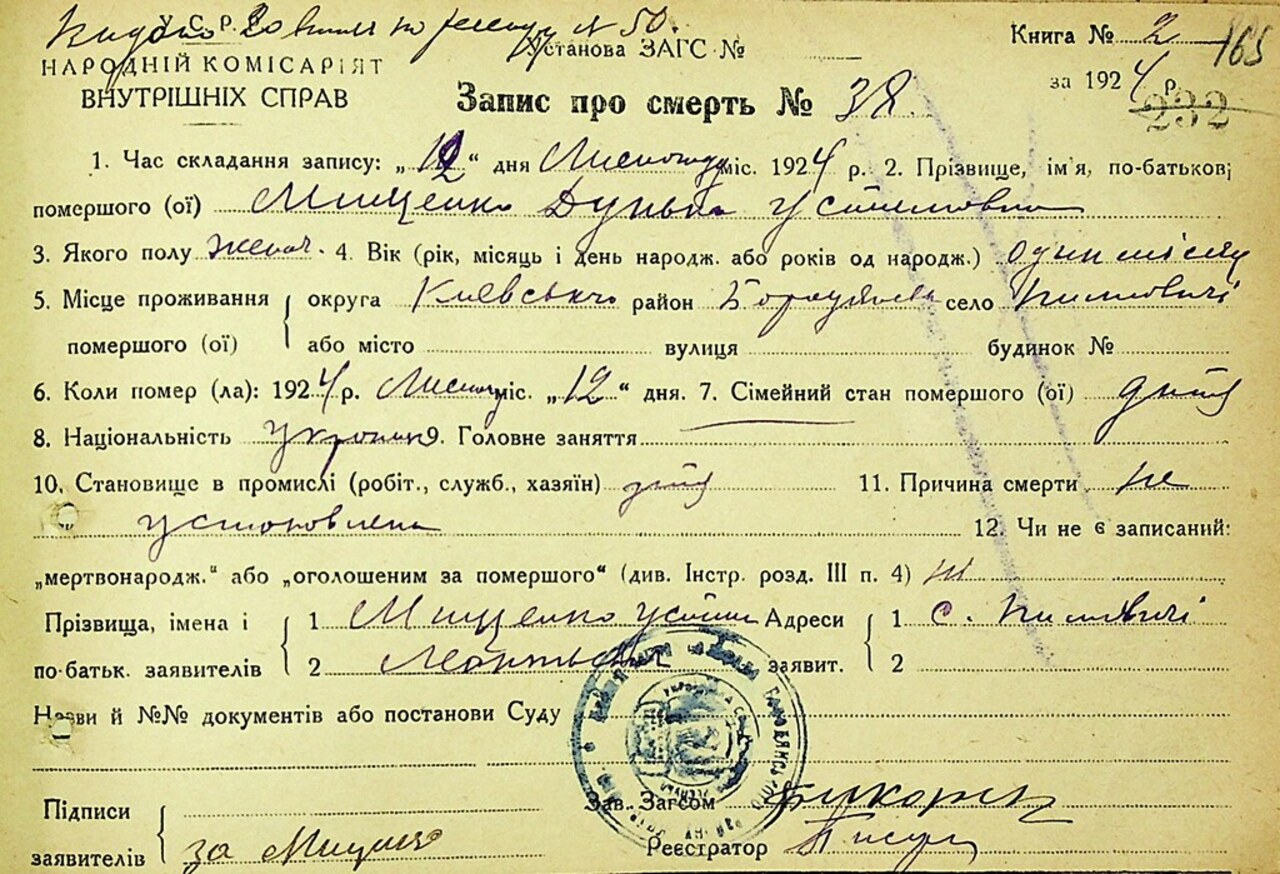 У. С. Р. Р.
по реєстру № 50.
Установа ЗАГС №
Книга № 2 165
НАРОДНІЙ КОМІСАРІЯТ
за 1924 р.
ВНУТРІШНІХ СПРАВ
Запис про смерть № 38.
232
1. Час складання запису: „12“ дня Листопаду міс. 1924 р. 2. Прізвище, ім'я, по-батькові
помершого (ої) Мищенко Дунька Устимовна
3. Якого полу женч. 4. Вік (рік, місяць і день народж. або років од народж.) один місяц
5. Місце проживання округа Киевська район село Пилиповичі
помершого (ої) або місто вулиця будинок №
6. Коли помер (ла): 1924 р. Листопад міс. „12“ дня. 7. Сімейний стан помершого (ої) дитя
8. Національність 9. Головне заняття
10. Становище в промислі (робіт., служб., хазяїн) дитя 11. Причина смерти не
установлена 12. Чи не є записаний:
„мертвонародж.“ або „оголошеним за помершого“ (див. Інстр. розд. III п. 4) ні
Прізвища, імена і 1 Мищенко Устим Адреси 1 с. Пилиповичі
по-батьк. заявителів 2 заявит. 2
Назви й №№ документів або постанови Суду
Зав. Загсом
Підписи
заявителів за Мищенко
Реєстратор